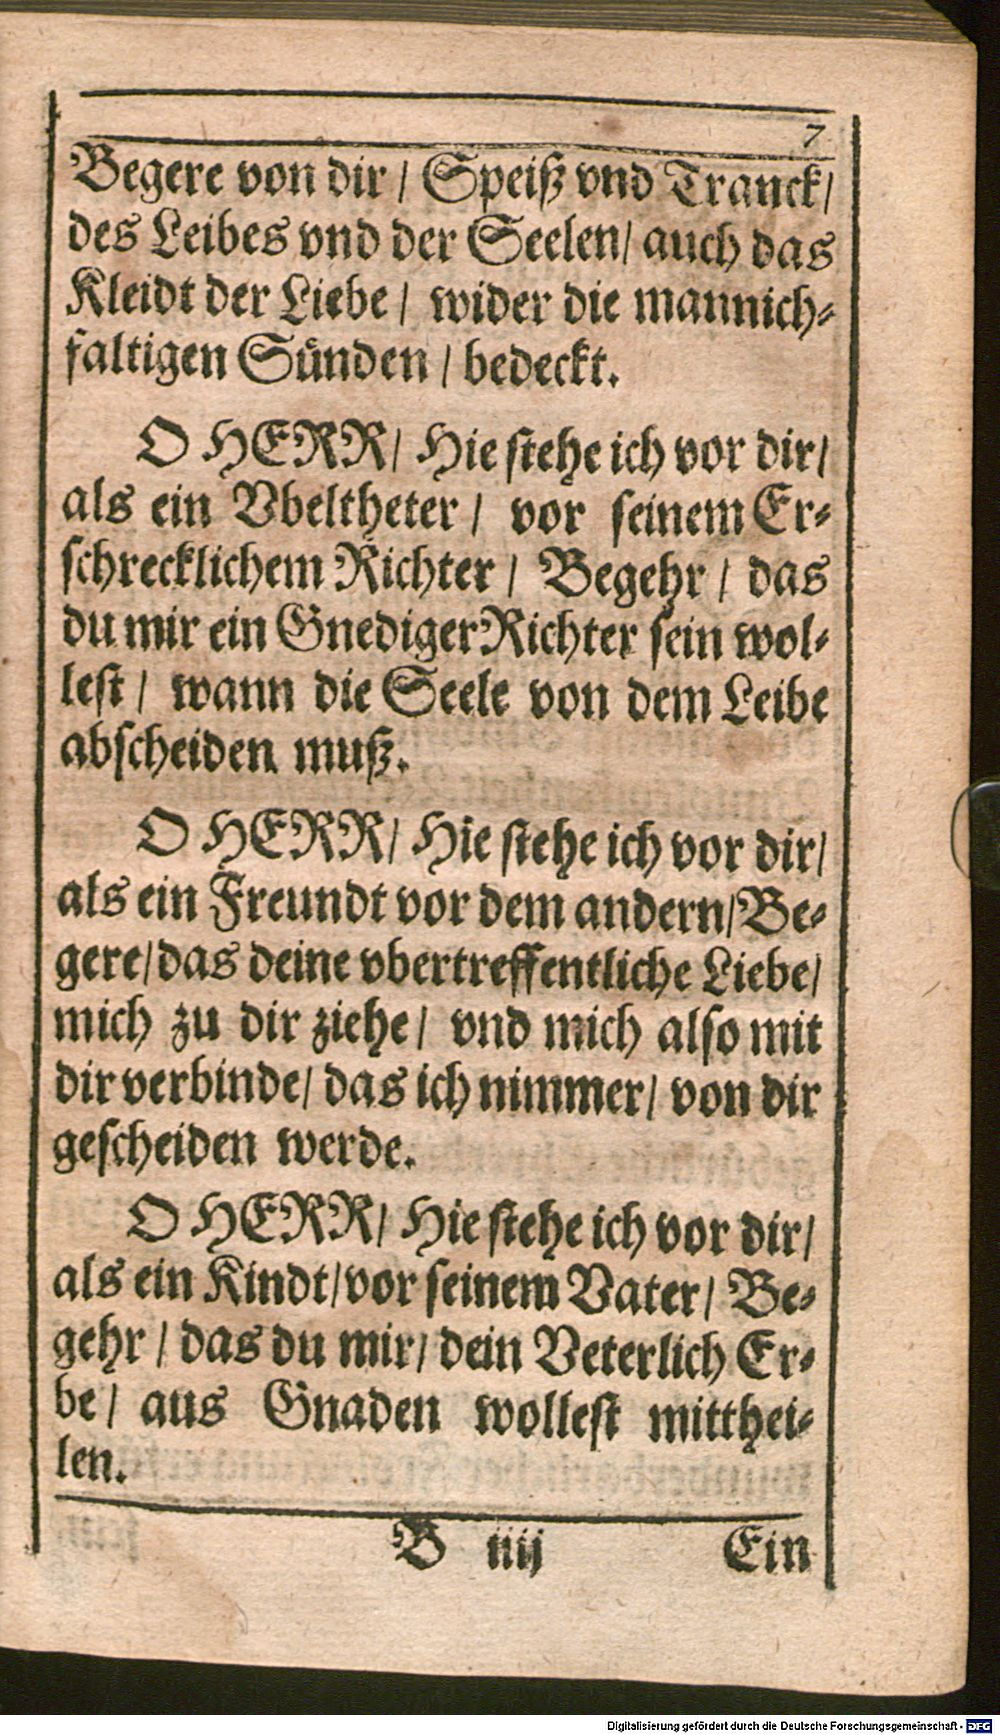 7
Begere von dir / Speiß vnd Tranck /
des Leibes vnd der Seelen / auch das
Kleidt der Liebe / wider die mannich-
faltigen Sünden / bedeckt.
O HERR / Hie stehe ich vor dir /
als ein Vbeltheter / vor seinem Er-
schrecklichem Richter / Begehr / das
du mir ein Gnediger Richter sein wol-
lest / wann die Seele von dem Leibe
abscheiden muß.
O HERR / Hie stehe ich vor dir /
als ein Freundt vor dem andern / Be-
gere / das deine vbertreffentliche Liebe /
mich zu dir ziehe / vnd mich also mit
dir verbinde / das ich nimmer / von dir
gescheiden werde.
O HERR / Hie stehe ich vor dir /
als ein Kindt / vor seinem Vater / Be-
gehr / das du mir / dein Veterlich Er-
be / aus Gnaden wollest mitthei-
len.
B iiij Ein
Digitalisierung gefördert durch die Deutsche Forschungsgemeinschaft - DFG